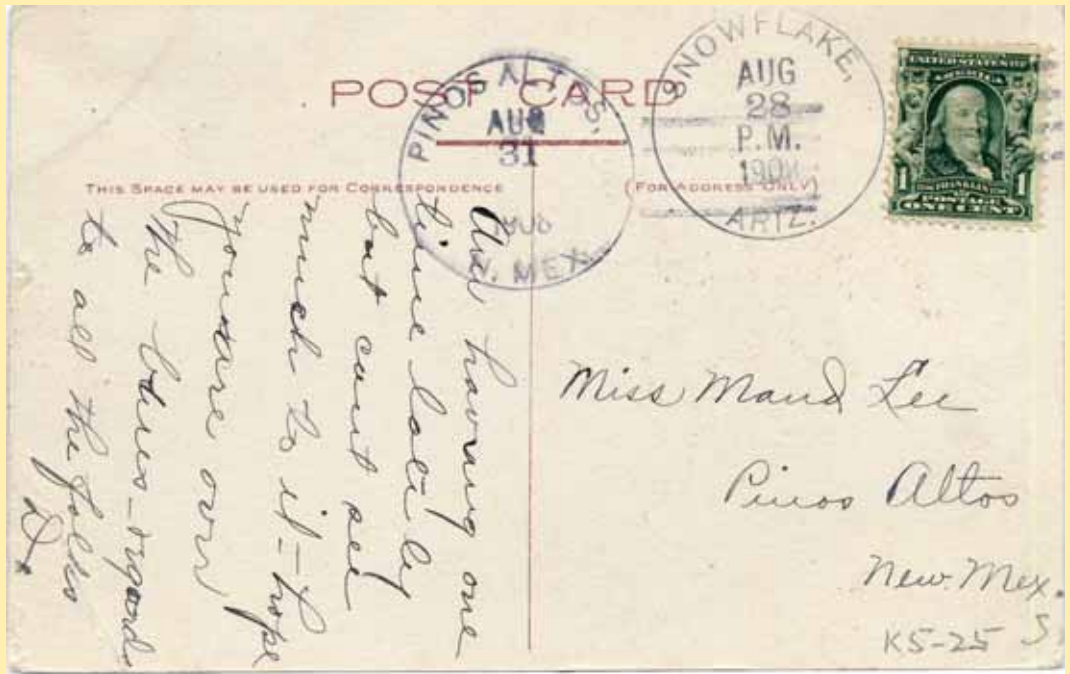 POST CARD
THIS SPACE MAY BE USED FOR CORRESPONDENCE
(FOR ADDRESS ONLY)
PINOS ALTOS,
AUG
31
N. MEX.
SNOWFLAKE,
AUG
28
P.M.
ARIZ.
UNITED STATES OF
AMERICA
1 FRANKLIN 1
POSTAGE
ONE CENT
having one
time
but cant see
much to it – hope
you are over
the – regards
to all the folks
D.
Miss Maud Lee
Pinos Altos
New. Mex.
K5-25 S